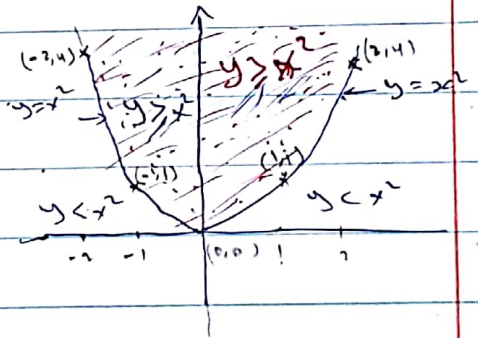 (-2,4)
y ≥ x²
(2,4)
y=x²
y ≥ x²
y = x²
(-1,1)
(1,1)
y < x²
y < x²
-2 -1 (0,0) 1 2